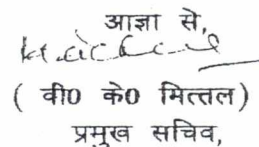 आज्ञा से,
( वी0 के0 मित्तल)
प्रमुख सचिव,